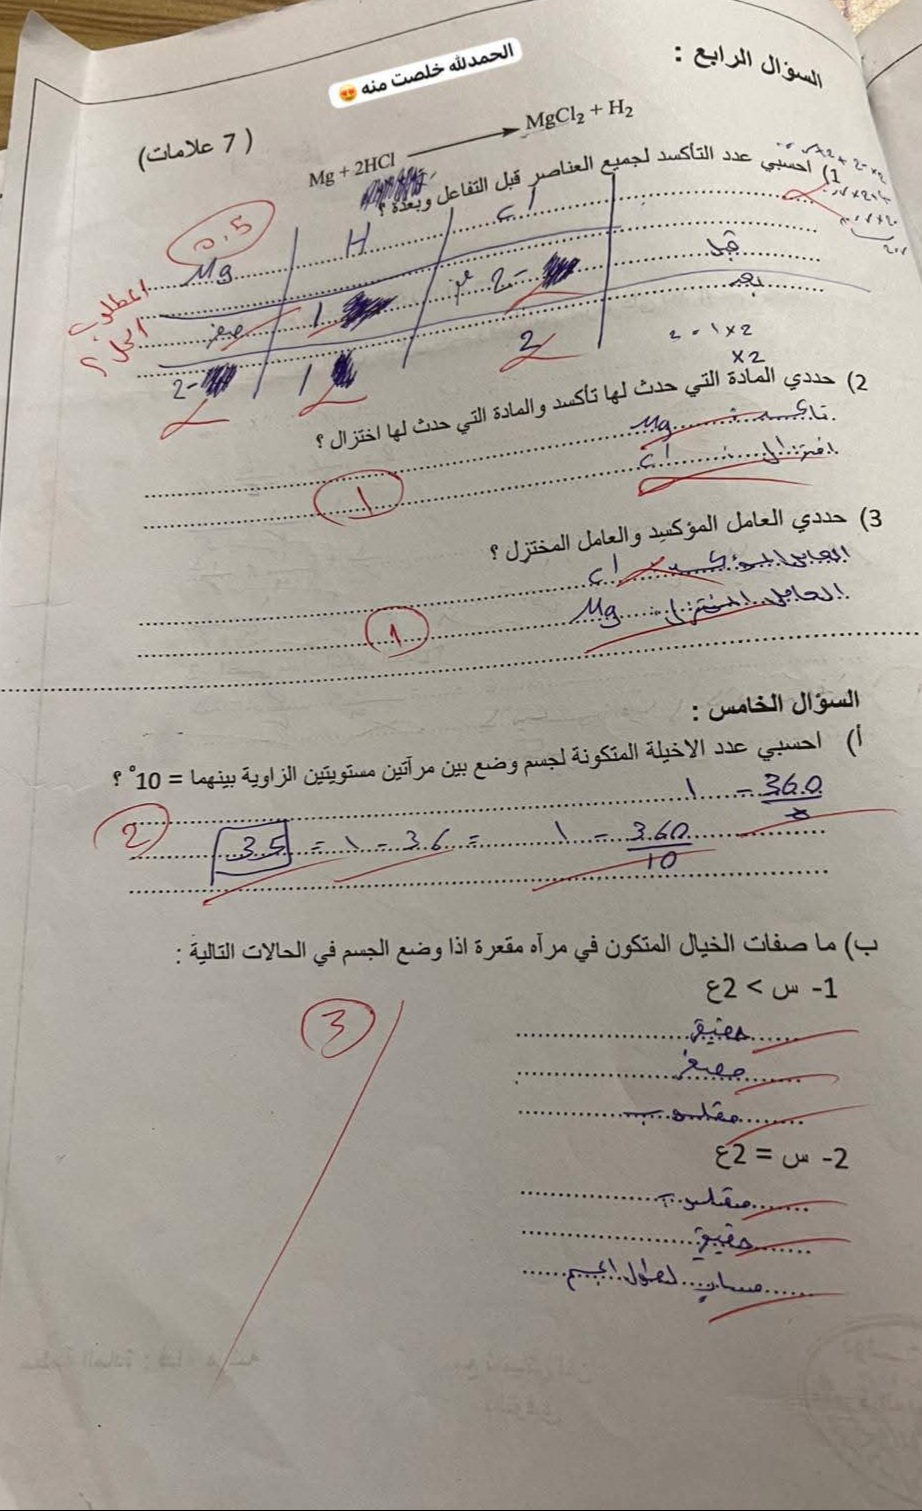 الحمدلله خلصت منه 😍
السؤال الرابع :
( 7 علامات)
Mg + 2HCl → MgCl₂ + H₂
1) احسبي عدد التأكسد لجميع العناصر قبل التفاعل وبعده ؟
0.5
Mg H Cl
المطلوب الحل ؟
قبل 2- 1 صفر
بعد 2 1 2-
2 = 1 × 2
×2
2) حددي المادة التي حدث لها تأكسد والمادة التي حدث لها اختزال ؟
تأكسد : Mg
اختزال : Cl
1
3) حددي العامل المؤكسد والعامل المختزل ؟
العامل المؤكسد Cl
العامل المختزل : Mg
1
السؤال الخامس :
أ) احسبي عدد الاخيلة المتكونة لجسم وضع بين مرآتين مستويتين الزاوية بينهما = 10° ؟
360 - 1
2
360/10 - 1 = 36 - 1 = 35
ب) ما صفات الخيال المتكون في مرآه مقعرة اذا وضع الجسم في الحالات التالية :
1- س > 2ع
3
حقيقي
مصغر
مقلوب
2- س = 2ع
مقلوب
حقيقي
مساوي لطول الجسم